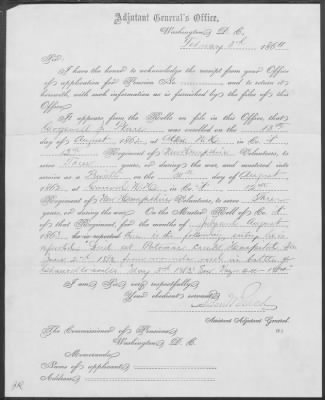 Adjutant General's Office,
Washington, D. C.
February 3rd 1864
Sir:
I have the honor to acknowledge the receipt from your Office
of application for Pension No. and to return it
herewith, with such information as is furnished by the files of this
Office.
It appears from the Rolls on file in this Office, that
was enrolled on the 13th
day of August 1862, at N.H. in Co. H
12th Regiment of New Hampshire Volunteers, to serve
Three years, or during the war, and mustered into
service as a Private on the 30th day of August
1862, at Concord N.H. in Co. H 12th
Regiment of New Hampshire Volunteers, to serve Three
years, or during the war. On the Muster Roll of Co. H
of that Regiment, for the months of July and August
1863, he is reported
Died at Potomac Creek Hospital Va
June 1863 from wounds recd in battle of
Chancellorsville May 3rd 1863
I am Sir, very respectfully,
Your obedient servant,
Assistant Adjutant General.
The Commissioner of Pensions
Washington D. C.
Memoranda
Name of applicant
Address